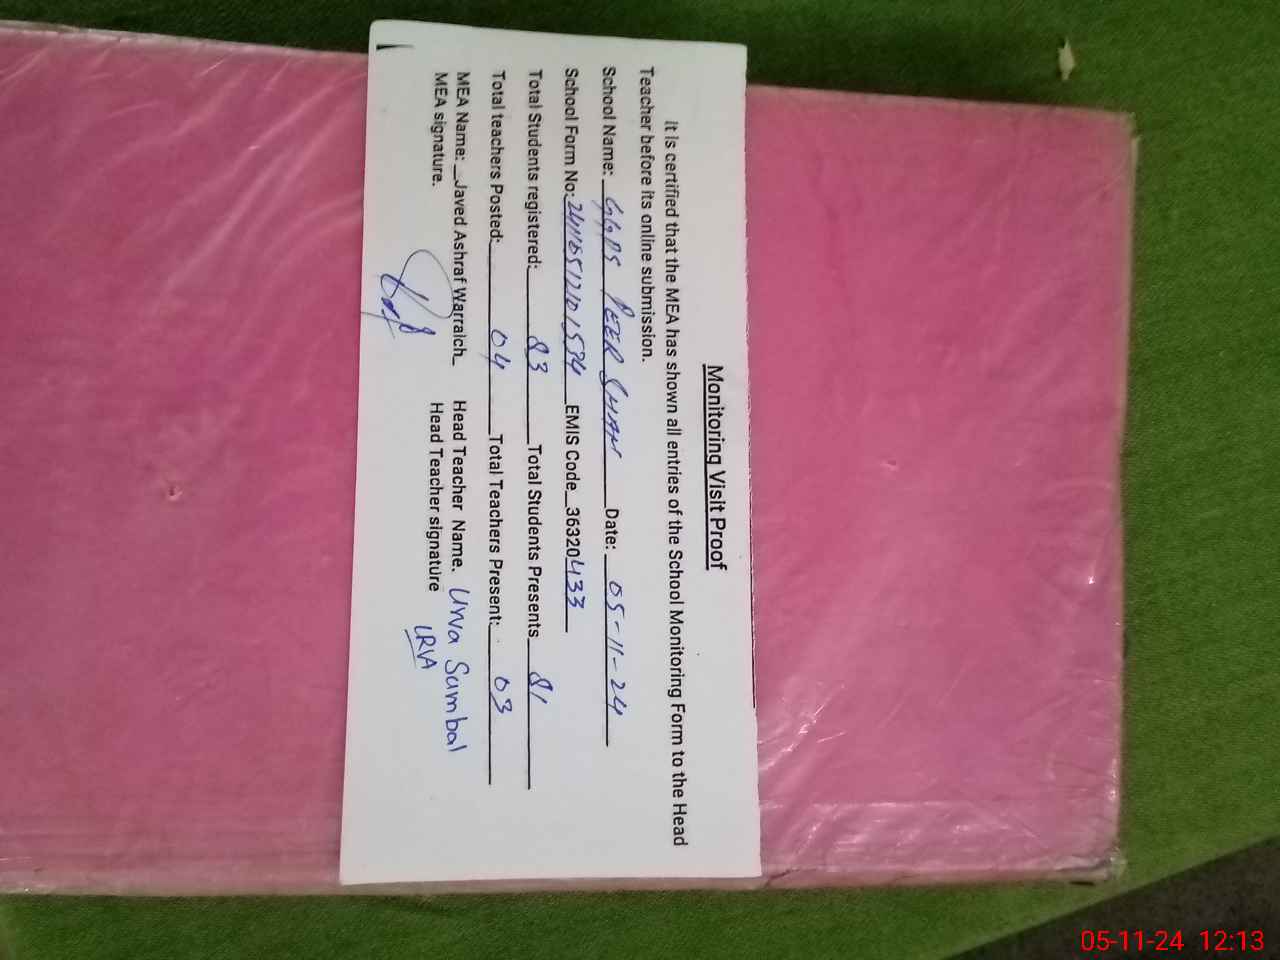 Monitoring Visit Proof
It is certified that the MEA has shown all entries of the School Monitoring Form to the Head
Teacher before its online submission.
School Name: GGPS PEER SHAH Date: 05-11-24
School Form No: 24110512101584 EMIS Code 36320433
Total Students registered: 83 Total Students Presents 81
Total teachers Posted: 04 Total Teachers Present: 03
MEA Name: _Javed Ashraf Warraich_ Head Teacher Name. Urva Sumbal
MEA signature. Head Teacher signature
05-11-24 12:13